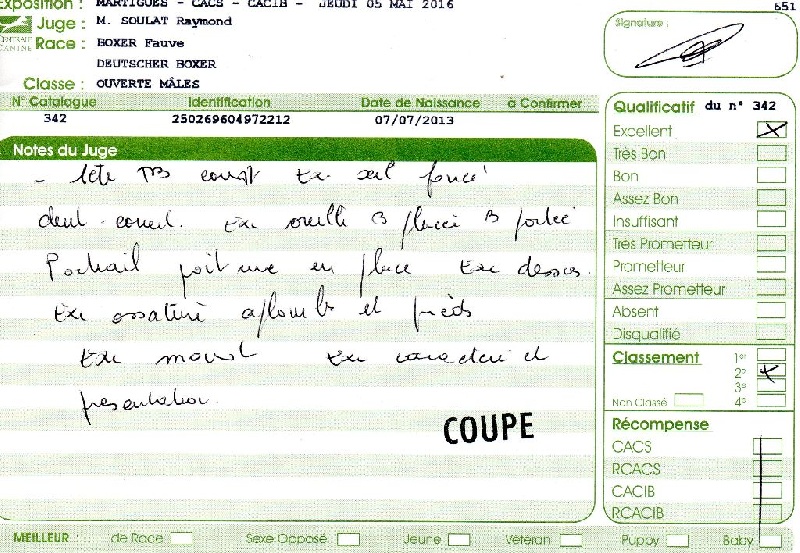 Exposition : MARTIGUES - CACS - CACIB - JEUDI 05 MAI 2016
651
Juge : M. SOULAT Raymond
Race : BOXER Fauve
DEUTSCHER BOXER
Classe : OUVERTE MÂLES
CENTRALE CANINE
Signature :
N° Catalogue Identification Date de Naissance à Confirmer
342 250269604972212 07/07/2013
Notes du Juge
- tête TB const Exc œil foncé
dent. correct. Exc oreille B placée B portée
Poitrail poitrine en place Exc dessus.
Exc ossature aplombs et pieds
Exc mouvt Exc caractère et
présentation.
COUPE
Qualificatif du n° 342
Excellent
Très Bon
Bon
Assez Bon
Insuffisant
Très Prometteur
Prometteur
Assez Prometteur
Absent
Disqualifié
Classement 1°
2°
3°
Non Classé 4°
Récompense
CACS
RCACS
CACIB
RCACIB
MEILLEUR : de Race Sexe Opposé Jeune Vétéran Puppy Baby